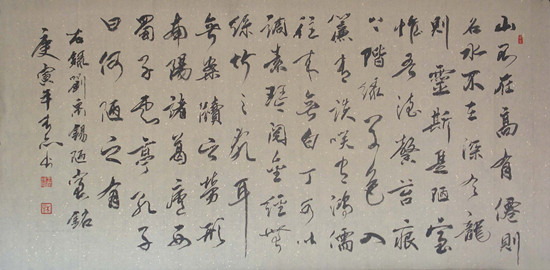 山不在高有僊則
名水不在深有龍
則靈斯是陋室
惟吾德馨苔痕
上階綠草色入
簾青談笑有鴻儒
往來無白丁可以
調素琴閱金經無
絲竹之亂耳
無案牘之勞形
南陽諸葛廬西
蜀子雲亭孔子
曰何陋之有
右錄劉禹錫陋室銘
庚寅年